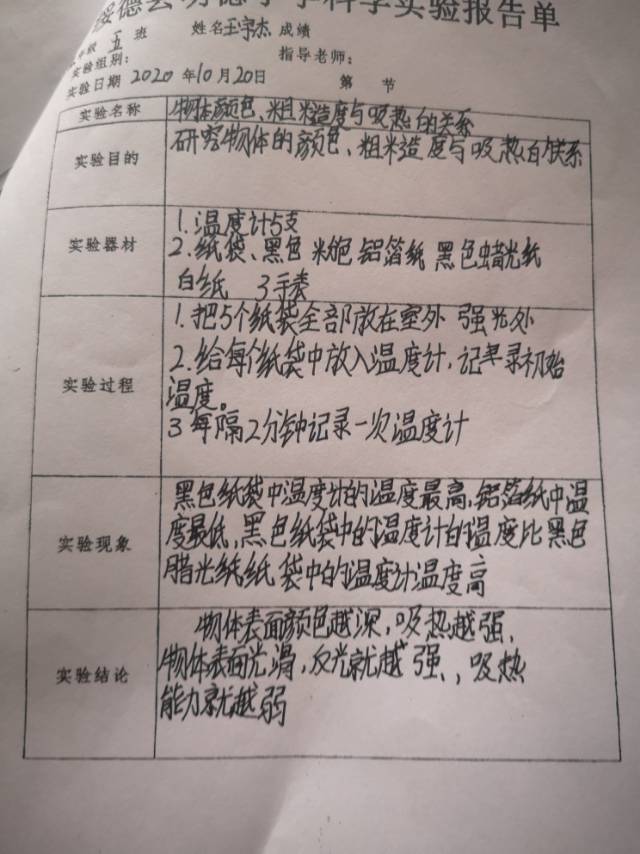 小学科学实验报告单
年级 五 班 姓名王宇杰 成绩
实验组别: 指导老师:
实验日期 2020 年10月20日 第 节
实验名称 物体颜色、粗糙度与吸热的关系
实验目的 研究物体的颜色、粗糙度与吸热的关系
实验器材
1.温度计5支
2.纸袋、黑色 铝箔纸 黑色蜡光纸
白纸 3手表
实验过程
1.把5个纸袋全部放在室外 强光处
2.给每个纸袋中放入温度计,记录初始
温度。
3 每隔2分钟记录一次温度计
实验现象
黑色纸袋中温度计的温度最高,铝箔纸中温
度最低,黑色纸袋中的温度计的温度比黑色
腊光纸纸袋中的温度计温度高
实验结论
物体表面颜色越深,吸热越强,
物体表面光滑,反光就越强,,吸热
能力就越弱